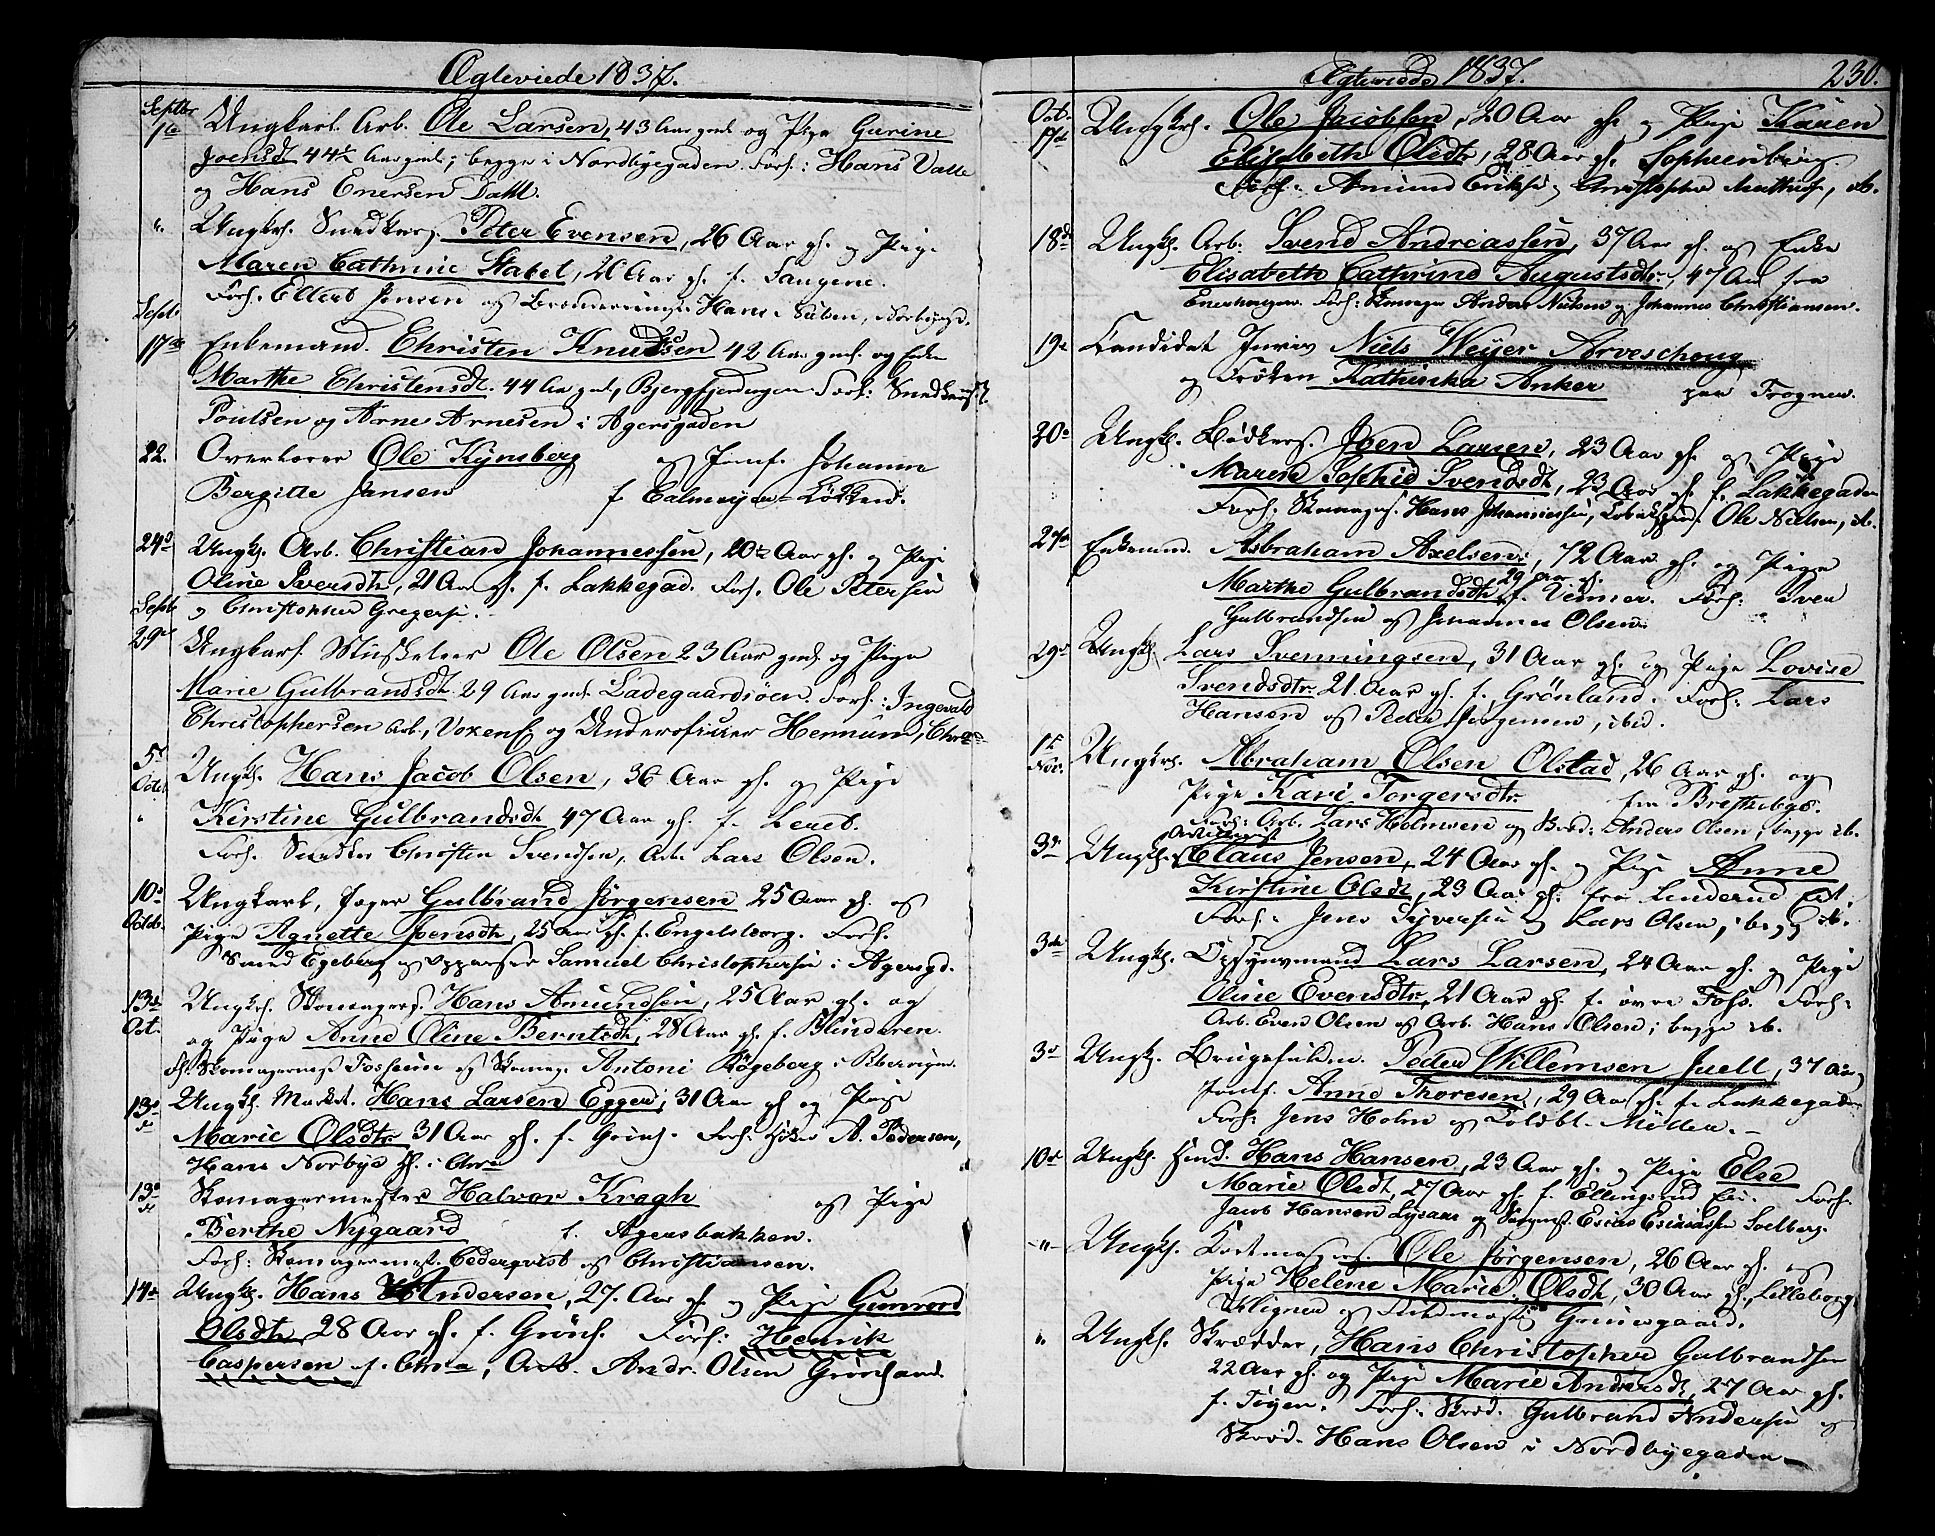 Ægteviede 1837.
Septbr 1te Ungkarl Arb. Ole Larsen, 43 Aar gml. og Pige Gurine
Joensdt. 44½ Aar gml; begge i Nordbyegaden. Forl: Hans Valle
og Hans Enersen Dahl.
" Ungkrl. Snedkers. Peter Evensen, 26 Aar gl. og Pige
Maren Cathrine Stabel, 26 Aar gl. f. Saugene.
Forl. Ellert Jensen og Hans Nilsen, Norbygd.
Septb 17de Enkemand Christen Knudsen 42 Aar gml. og Enke
Marthe Christensdt. 44 Aar gml, Bjergfjerdingen Forl: Snedkers.
Poulsen og Arne Arnesen i Agersgaden
22. Overlærer Ole Kynsberg og Jomf. Johanne
Bergitte Jansen f Calmeyer-Løkken.
24d Ungkl. Arb. Christian Johannessen, 20½ Aar gl. og Pige
Oline Iversdtr, 21 Aar gl. f. Lakkegad. Forl. Ole Petersen
og Christopher Gregersen.
Septb 29de Ungkarl Musketeer Ole Olsen 23 Aar gml. og Pige
Marie Gulbrandsdt. 29 Aar gml. Ladegaardsøen. Forl.: Ingevald
Christophersen Arb, Voxen E. og Underofficer Hennum, Chra
5t Octob. Ungkl. Hans Jacob Olsen, 36 Aar gl. og Pige
Kirstine Gulbrandsdt 47 Aar gl. f.
Forl. Snedker Christen Svendsen, Arb. Lars Olsen.
10d Octob. Ungkarl, Jæger Gulbrand Jørgensen 25 Aar gl. og
Pige Agnette Joensdt, 25 Aar gl. f. Engelsborg. Forl.
Smed Egeberg og Samuel Christophersen i Agersgd.
13de Oct. Ungkrl. Skomagers. Hans Amundsen, 25 Aar gl. og
og Pige Anne Oline Berntsdt, 28 Aar gl. f. Blinderen.
fl. Skomagermest Fossum og Skomag. Antoni Røgeberg i Pibervigen.
13de Ungkl. Hans Larsen Egger, 31 Aar gl og Pige
Marie Olsdtr 31 Aar gl. f. Grønl. Forl: A. Pedersen,
Hans Norbye i Chra
13d Skomagermester Halvor Kragh og Pige
Berthe Nygaard f. Agersbakken.
Forl: Skomagermest. Cederqvist og Christiansen.
14d Ungkl. Hans Andersen, 27. Aar gl. og Pige Gunvord
Olsdtr 28 Aar gl. f. Grønl. Forl: Henrik
Caspersen f. Chra, Arb. Andr. Olsen Grønland.
Ægteviede 1837. 230.
Oct. 17de Ungkrl. Ole Jacobsen, 20 Aar gl. og Pige Karen
Elisabeth Olsdtr, 28 Aar gl. Sophienberg.
Forl: Amund Eriksen og Christopher Mathisen, ib.
18de Ungkl. Arb. Svend Andreassen, 37 Aar gl. og Enke
Elisabeth Cathrine Augustsdtr., 47 Aar fra
Enerhaugen. Forl: Skomager Anders Nielsen og Johannes Christiansen.
19de Candidat Juris Niels Weyer Arveschoug
og Frøken Kathinka Anker paa Frogner.
20de Ungkl. Bødkers. Joen Larsen, 23 Aar gl. og Pige
Maren Sophie Svendsdt, 23 Aar gl. f. Lakkegaden
Forl: Skomagers. Hans Johannessen, Ole Nielsen, ib.
27de Enkem. Abraham Axelsen, 72 Aar gl. og Pige
Marthe Gulbrandsdt 29 Aar gl. f. Forl: Iver
Gulbrandsen og Johannes Olsen.
29de Ungkl. Lars Svenningsen, 31 Aar gl. og Pige Lovise
Svendsdtr. 21 Aar gl. f. Grønland. Forl: Lars
Hansen og Peder Jørgensen, ibid.
1t Nov. Ungkrl. Abraham Olsen Olstad, 26 Aar gl. og
Pige Kari Torgersdtr. fra
Forl: Arb. Lars Holmsen og Anders Olsen, begge ib.
3de Ungkl. Claus Jensen, 24 Aar gl. og Pige Anne
Kirstine Olsdt, 23 Aar gl. fra Linderud
Forl: Jens Syversen og Lars Olsen, begg ib.
3die Ungkl. Opsynsmand Lars Larsen, 24 Aar gl. og Pige
Oline Evensdtr, 21 Aar gl. f. øvre Foss. Forl:
Arb. Even Olsen og Arb. Hans Olsen, begge ib.
3d Ungkl. Peder Willemsen Juell, 37 Aar,
Jomf. Anne Thoresen, 29 Aar gl. f. Lakkegaden
Forl: Jens Holm og Toldbt. Møller.
10de Ungkl. Hans Hansen, 23 Aar gl. og Pige Else
Marie Olsdt, 27 Aar gl. f. Ellingsrud Forl.
Jacob Hansen og Esaias Esaiassen Solberg.
-"- Ungkl. Ole Jørgensen, 26 Aar gl. og
Pige Helene Marie Olsdt, 30 Aar gl., Lilleborg
og Griinsgaard.
" Ungkl. Skrædder, Hans Christopher Gulbrandsen
22 Aar gl. og Pige Marie Andersdt, 27 Aar gl.
f. Tøyen. Forl: Skræd. Gulbrand Andersen og
Skræd. Hans Olsen i Nordbyegaden